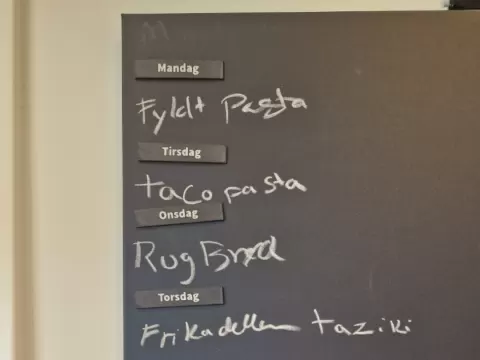 Mandag
Fyldt Pasta
Tirsdag
taco pasta
Onsdag
RugBrød
Torsdag
Frikadeller taziki